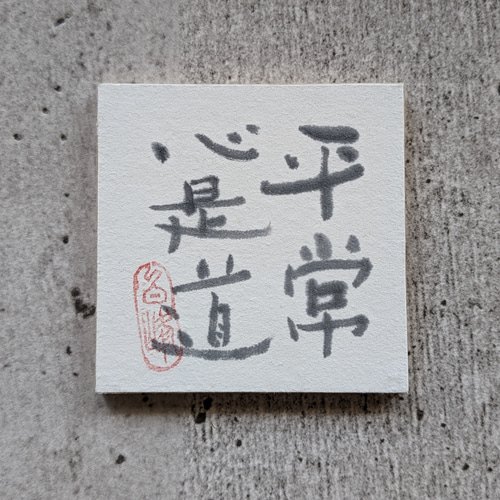 平常
心是道